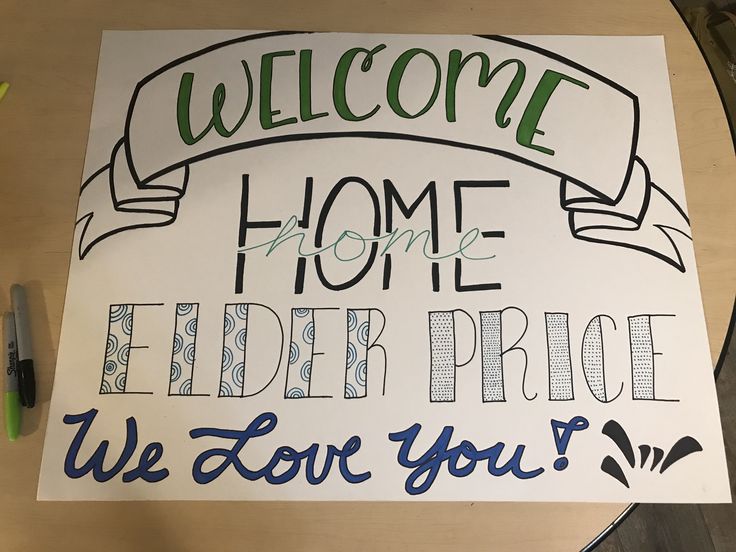 WELCOME
HOME
home
ELDER PRICE
We Love You!
Sharpie